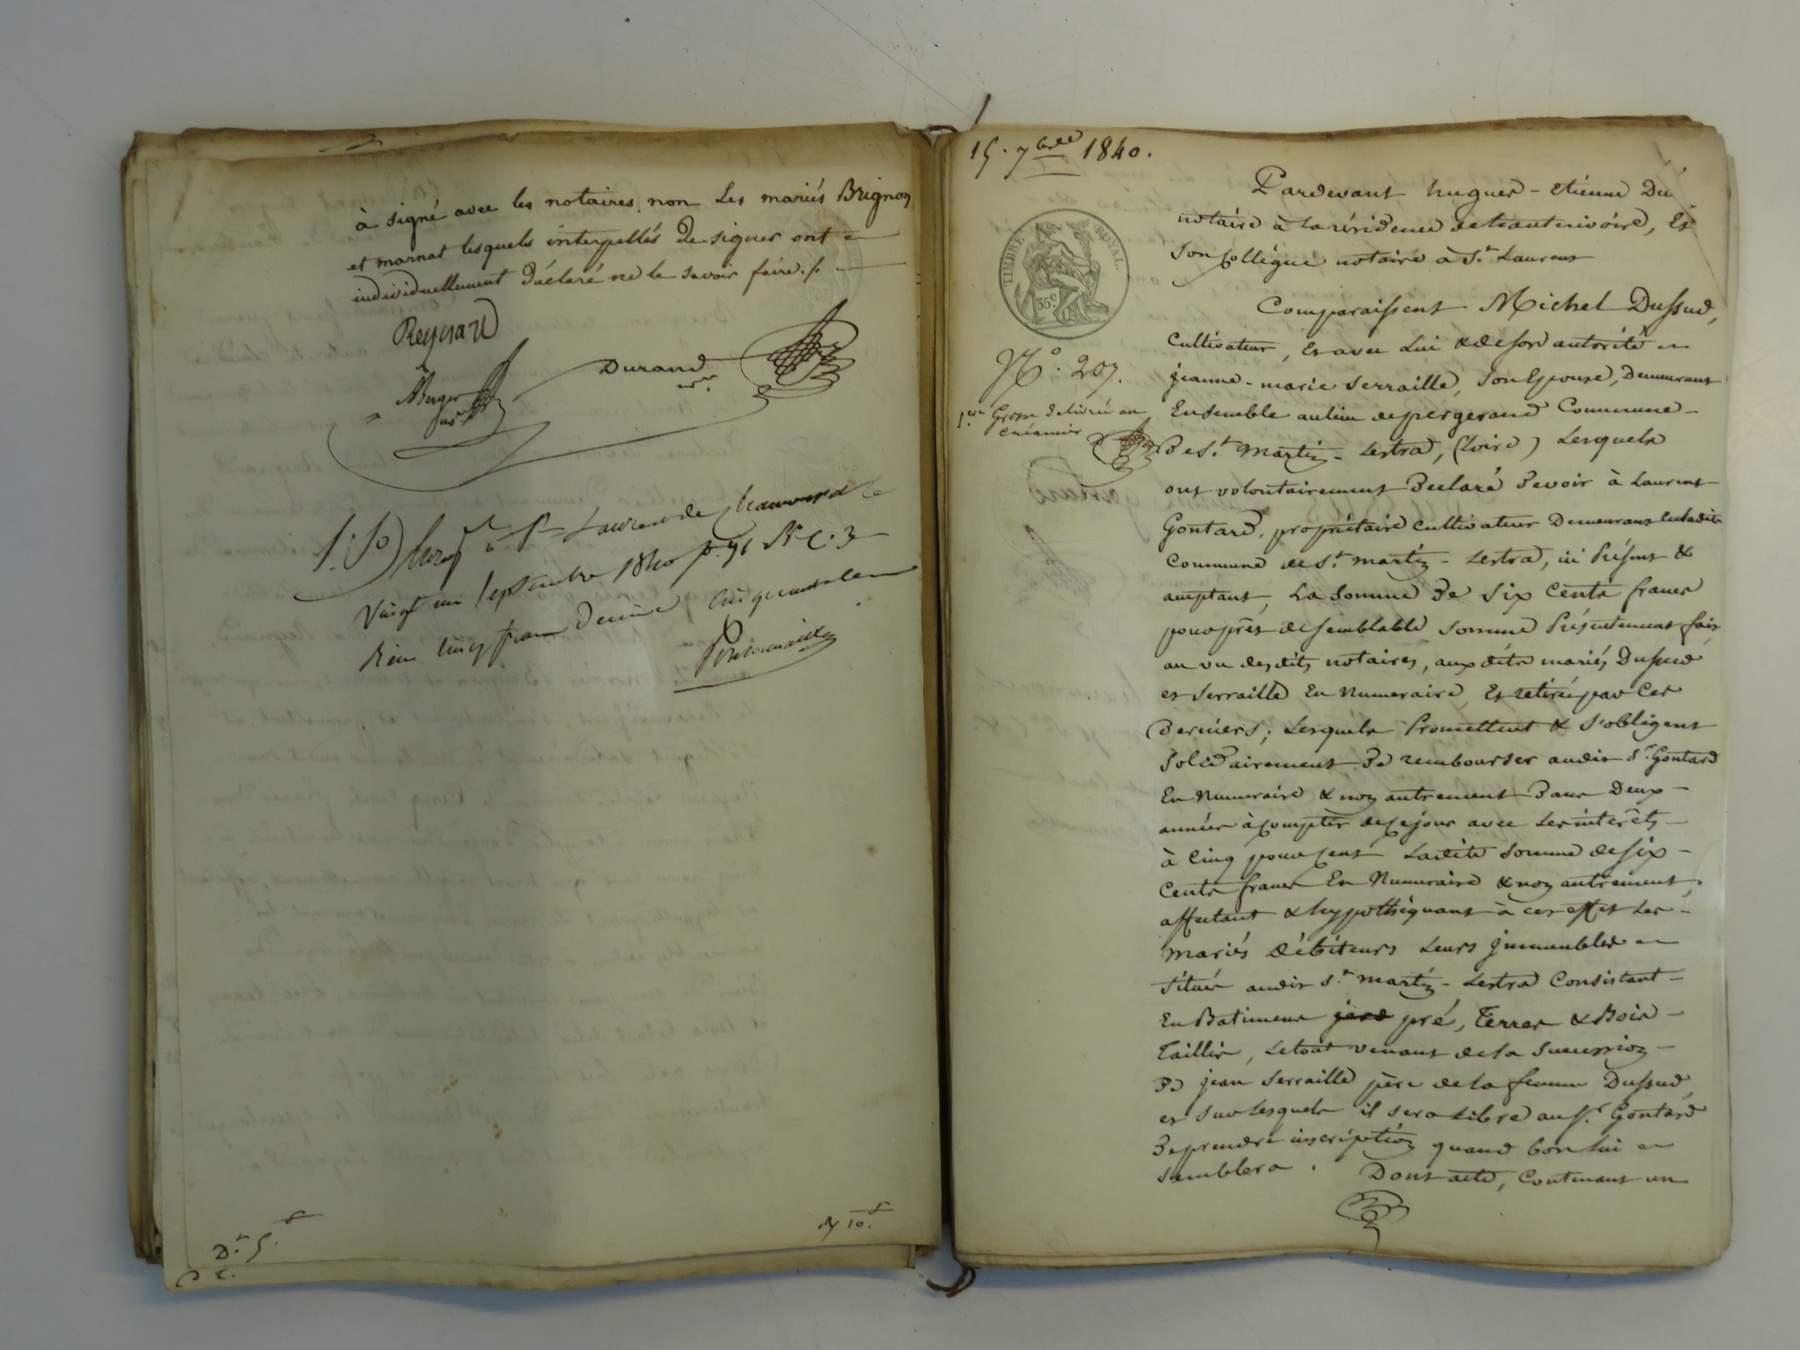 à signé avec les notaires, non Les mariés Brignon
et marnat lesquels interpellés de signer ont
individuellement déclaré ne le savoir faire ./.
Reynard
Durand
nre.
Berger
not
à St Laurent de chamousset le
vingt un Septembre 1840 fo. 91 Ro C. 3
Reçu cinq francs decime cinquante cent
Dt. 5. f
d c.
10. f
15. 7bre 1840.
TIMBRE ROYAL.
35c
No. 207.
1ere Grosse délivrée au
créancier
Pardevant hugues - etiénne Du
notaire à la résidence de hauterivoire, Et
Son Collègue notaire à St. Laurent
Comparaissent Michel Dussud,
Cultivateur, Et avec Lui & de son autorité
jeanne - marie Serraille, Son Epouse, Demeurant
Ensemble au lieu de pergerand Commune
De St. Martin - Lestra, (Loire) Lesquels
ont volontairement Declaré Devoir à Laurent
Gontard, propriétaire cultivateur Demeurant en ladite
Commune de St. martin - Lestra, ici Présent &
acceptant, La Somme De Six Cents francs
pour prêt de semblable Somme Présentement fait
au vu desdits notaires, aux dits mariés Dussud
et Serraille En Numeraire, Et retirée par Ces
Derniers; Lesquels Promettent & S'obligent
Solidairement De rembourser audit Sr. Gontard
En Numeraire & non autrement Dans Deux
années à compter de ce jour avec Les intérêts
à Cinq pour cent Ladite Somme de six
Cents francs En Numeraire & non autrement,
affectant & hypothéquant à cet effet Les
mariés débiteurs Leurs jmmeubles
Situés audit St. martin - Lestra Consistant
En Batiment pré, Terres & Bois
Taillis, Le tout venant de la Succession
De jean Serraille père de la femme Dussud
et sur Lesquels il sera Libre au Sr. Gontard
De prendre inscription quand bon Lui
Semblera. Dont acte, Contenant un